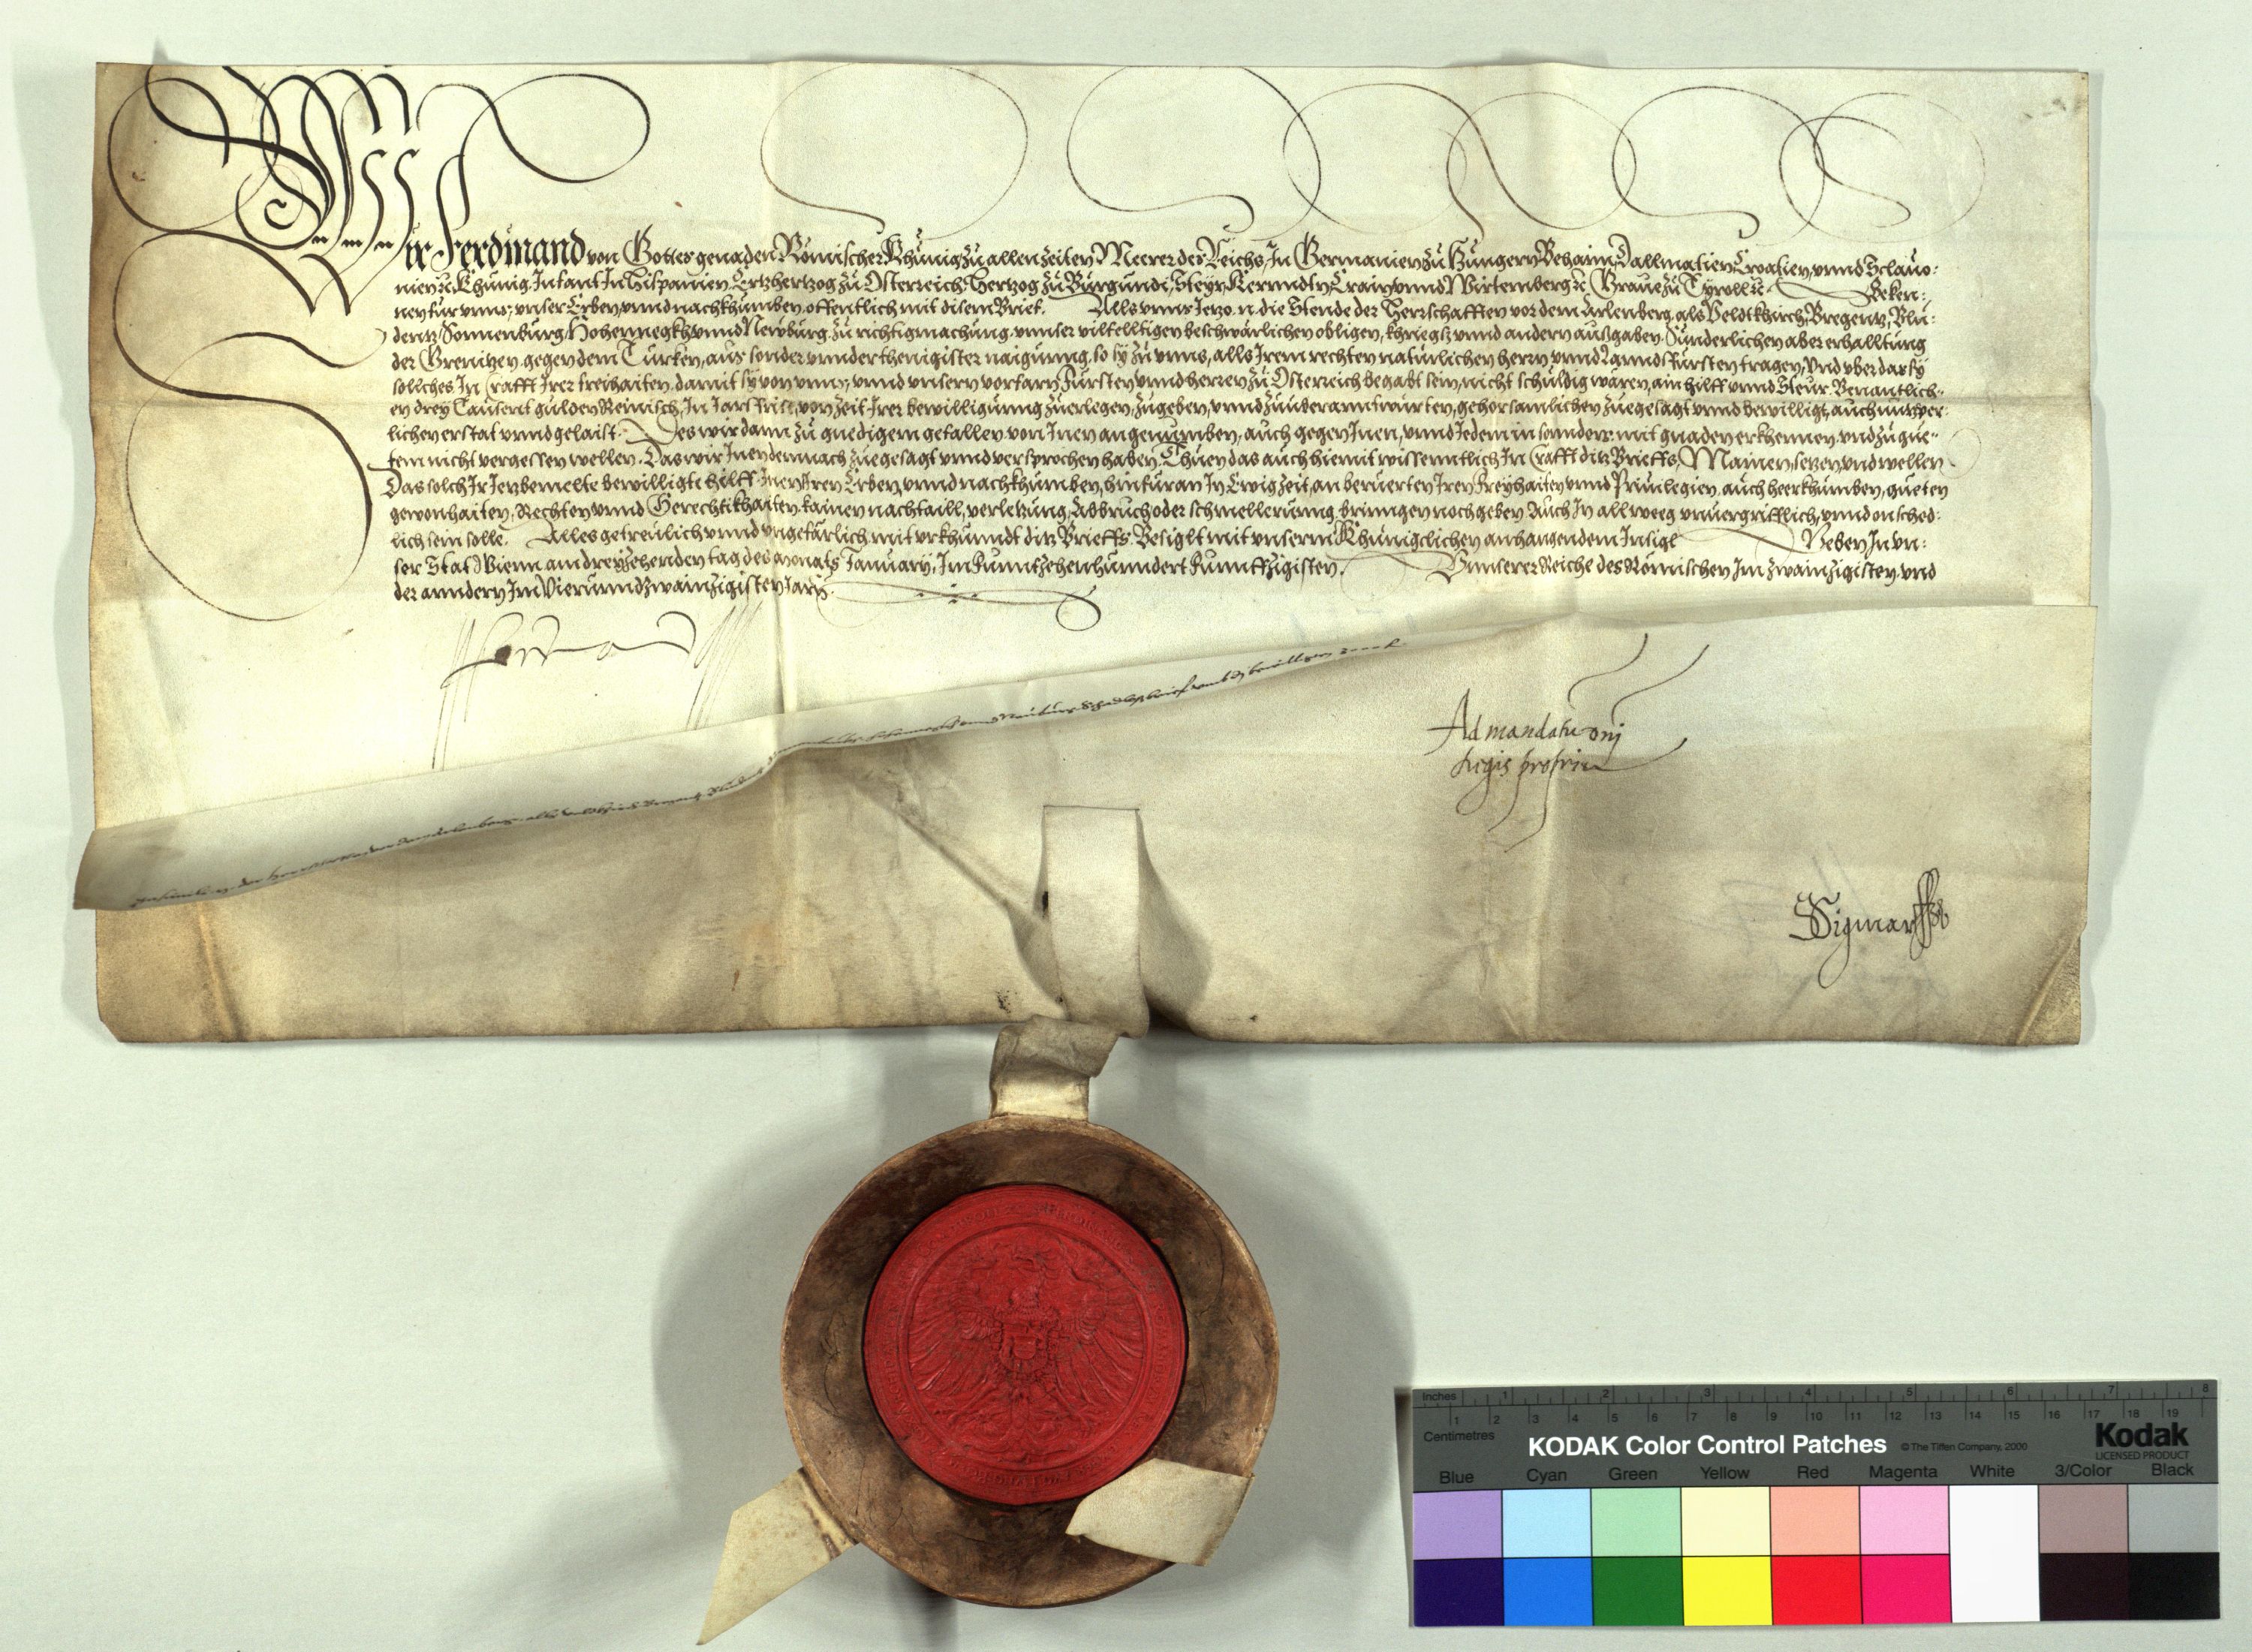 Wir Ferdinand von Gottes genaden Römischer Khünig zu allen Zeiten Meerer des Reichs, In Germanien zu Hungern Behaim Dallmatien Croatien, vnnd Sclauo-
nien ꝛc. Khünig, Infant In Hispanien, Ertzhertzog zu Österreich, Hertzog zu Burgundi, Steyr, Kerrndtn, Crain, vnnd Wirtemberg ꝛc. Graue zu Tyroll ꝛc. Beken-
nen für vnns, vnser Erben, vnnd nachkhumben, offentlich mit disem Brief. Alls vnns Jetzo. n. die Stende der Herrschafften vor dem Arlenberg, als Veldtkhirch, Bregentz, Blu-
dentz, Sonnenburg, Hohennegkh vnnd Newburg, zu richtigmachung, vnnser vilfelltigen beschwärlichen obligen, khriegs vnnd andern außgaben, Sunderlichen aber erhalltung
der Grenitzen, gegen dem Türken, aus sonder vnnderthenigister naigung, so sy zu vnns, alls Irem rechten naturlichen herrn vnnd Lanndsfürsten tragen, Vnd vber das sy
sollches In Crafft Irer freihaiten, damit sy von vnns, vnnd vnsern vorfarn Fürsten vnnd herren zu Österreich begabt sein, nicht schuldig wären, ain hilff vnnd Steur Benantlich-
en drey Tausent gulden Reinisch, In Jars frist, von Zeit Irer bewilligung zuerlegen, zugeben, vnnd zuuberanntwurten, gehorsamlichen zuegesagt vnnd bewilligt, auch
lichen erstat vnnd gelaist. Des wir dann zu gnedigem gefallen von Inen angenumben, auch gegen Inen, vnnd Jedem in sonnders mit gnaden erkhennen, vnd zu gue-
tem nicht vergessen wellen. Das wir Inen demnach zuegesagt vnnd versprochen haben, Thuen das auch hiemit wissenntlich In Crafft ditz Brieffs, Mainen setzen, vnd wellen
Das solch Ir Jetzbemelte bewilligte hilff Inen, Iren Erben, vnnd nachkhumben, hinfüran In Ewig Zeit, an berüerten Iren Freyhaiten vnnd Priuilegien, auch heerkhumben, gueten
gewonhaiten, Rechten vnnd Gerechtikhaiten, kainen nachtaill, verletzung, Abbruch oder schmellerung, bringen noch geben, Auch In allweeg vnuergrifflich, vnnd onsched-
lich sein solle. Alles getreulich vnnd vngefärlich, mit vrkhundt ditz Brieffs Besiglt mit vnserm Khünigclichen anhangendem Insigl Geben In vn-
ser Stat Wienn am dreyzehenden tag des monats Januarij, Im Funntzehenhunndert Funnftzigisten, Vnnserer Reiche des Römischen Im Zwaintzigisten, vnd
der anndern Im Vierunndzwaintzigisten Jarn.
Ferdinand
Ad mandatu dnj
Regis propriu
Inches 1 2 3 4 5 6 7 8
Centimetres 1 2 3 4 5 6 7 8 9 10 11 12 13 14 15 16 17 18 19
KODAK Color Control Patches © The Tiffen Company, 2000 Kodak
LICENSED PRODUCT
Blue Cyan Green Yellow Red Magenta White 3/Color Black